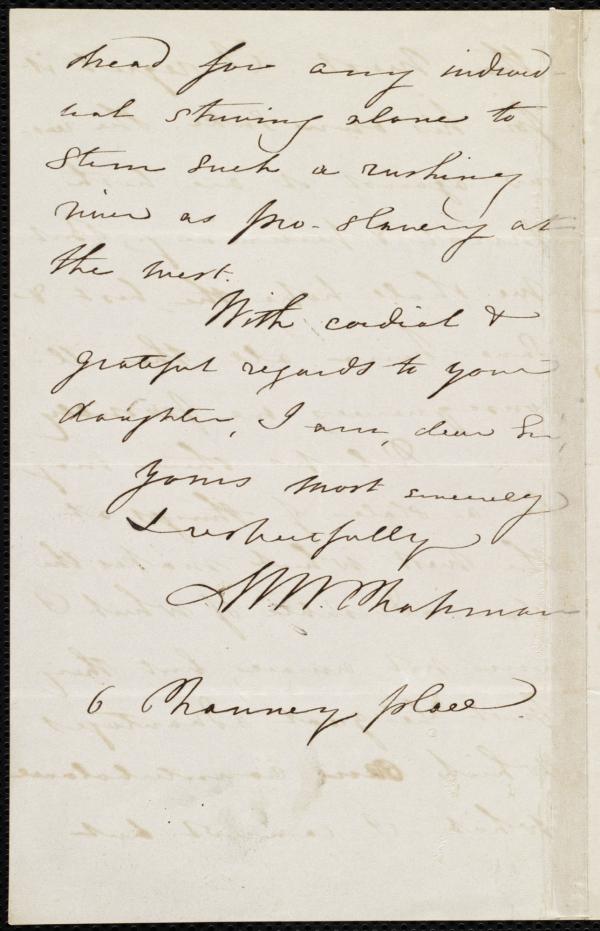 dread for any individ-
ual striving alone to
stem such a rushing
river as pro-slavery at
the west.
With cordial &
grateful regards to your
daughter, I am, dear Sir,
yours most sincerely
& respectfully
M. W. Chapman
6 Chauncey place